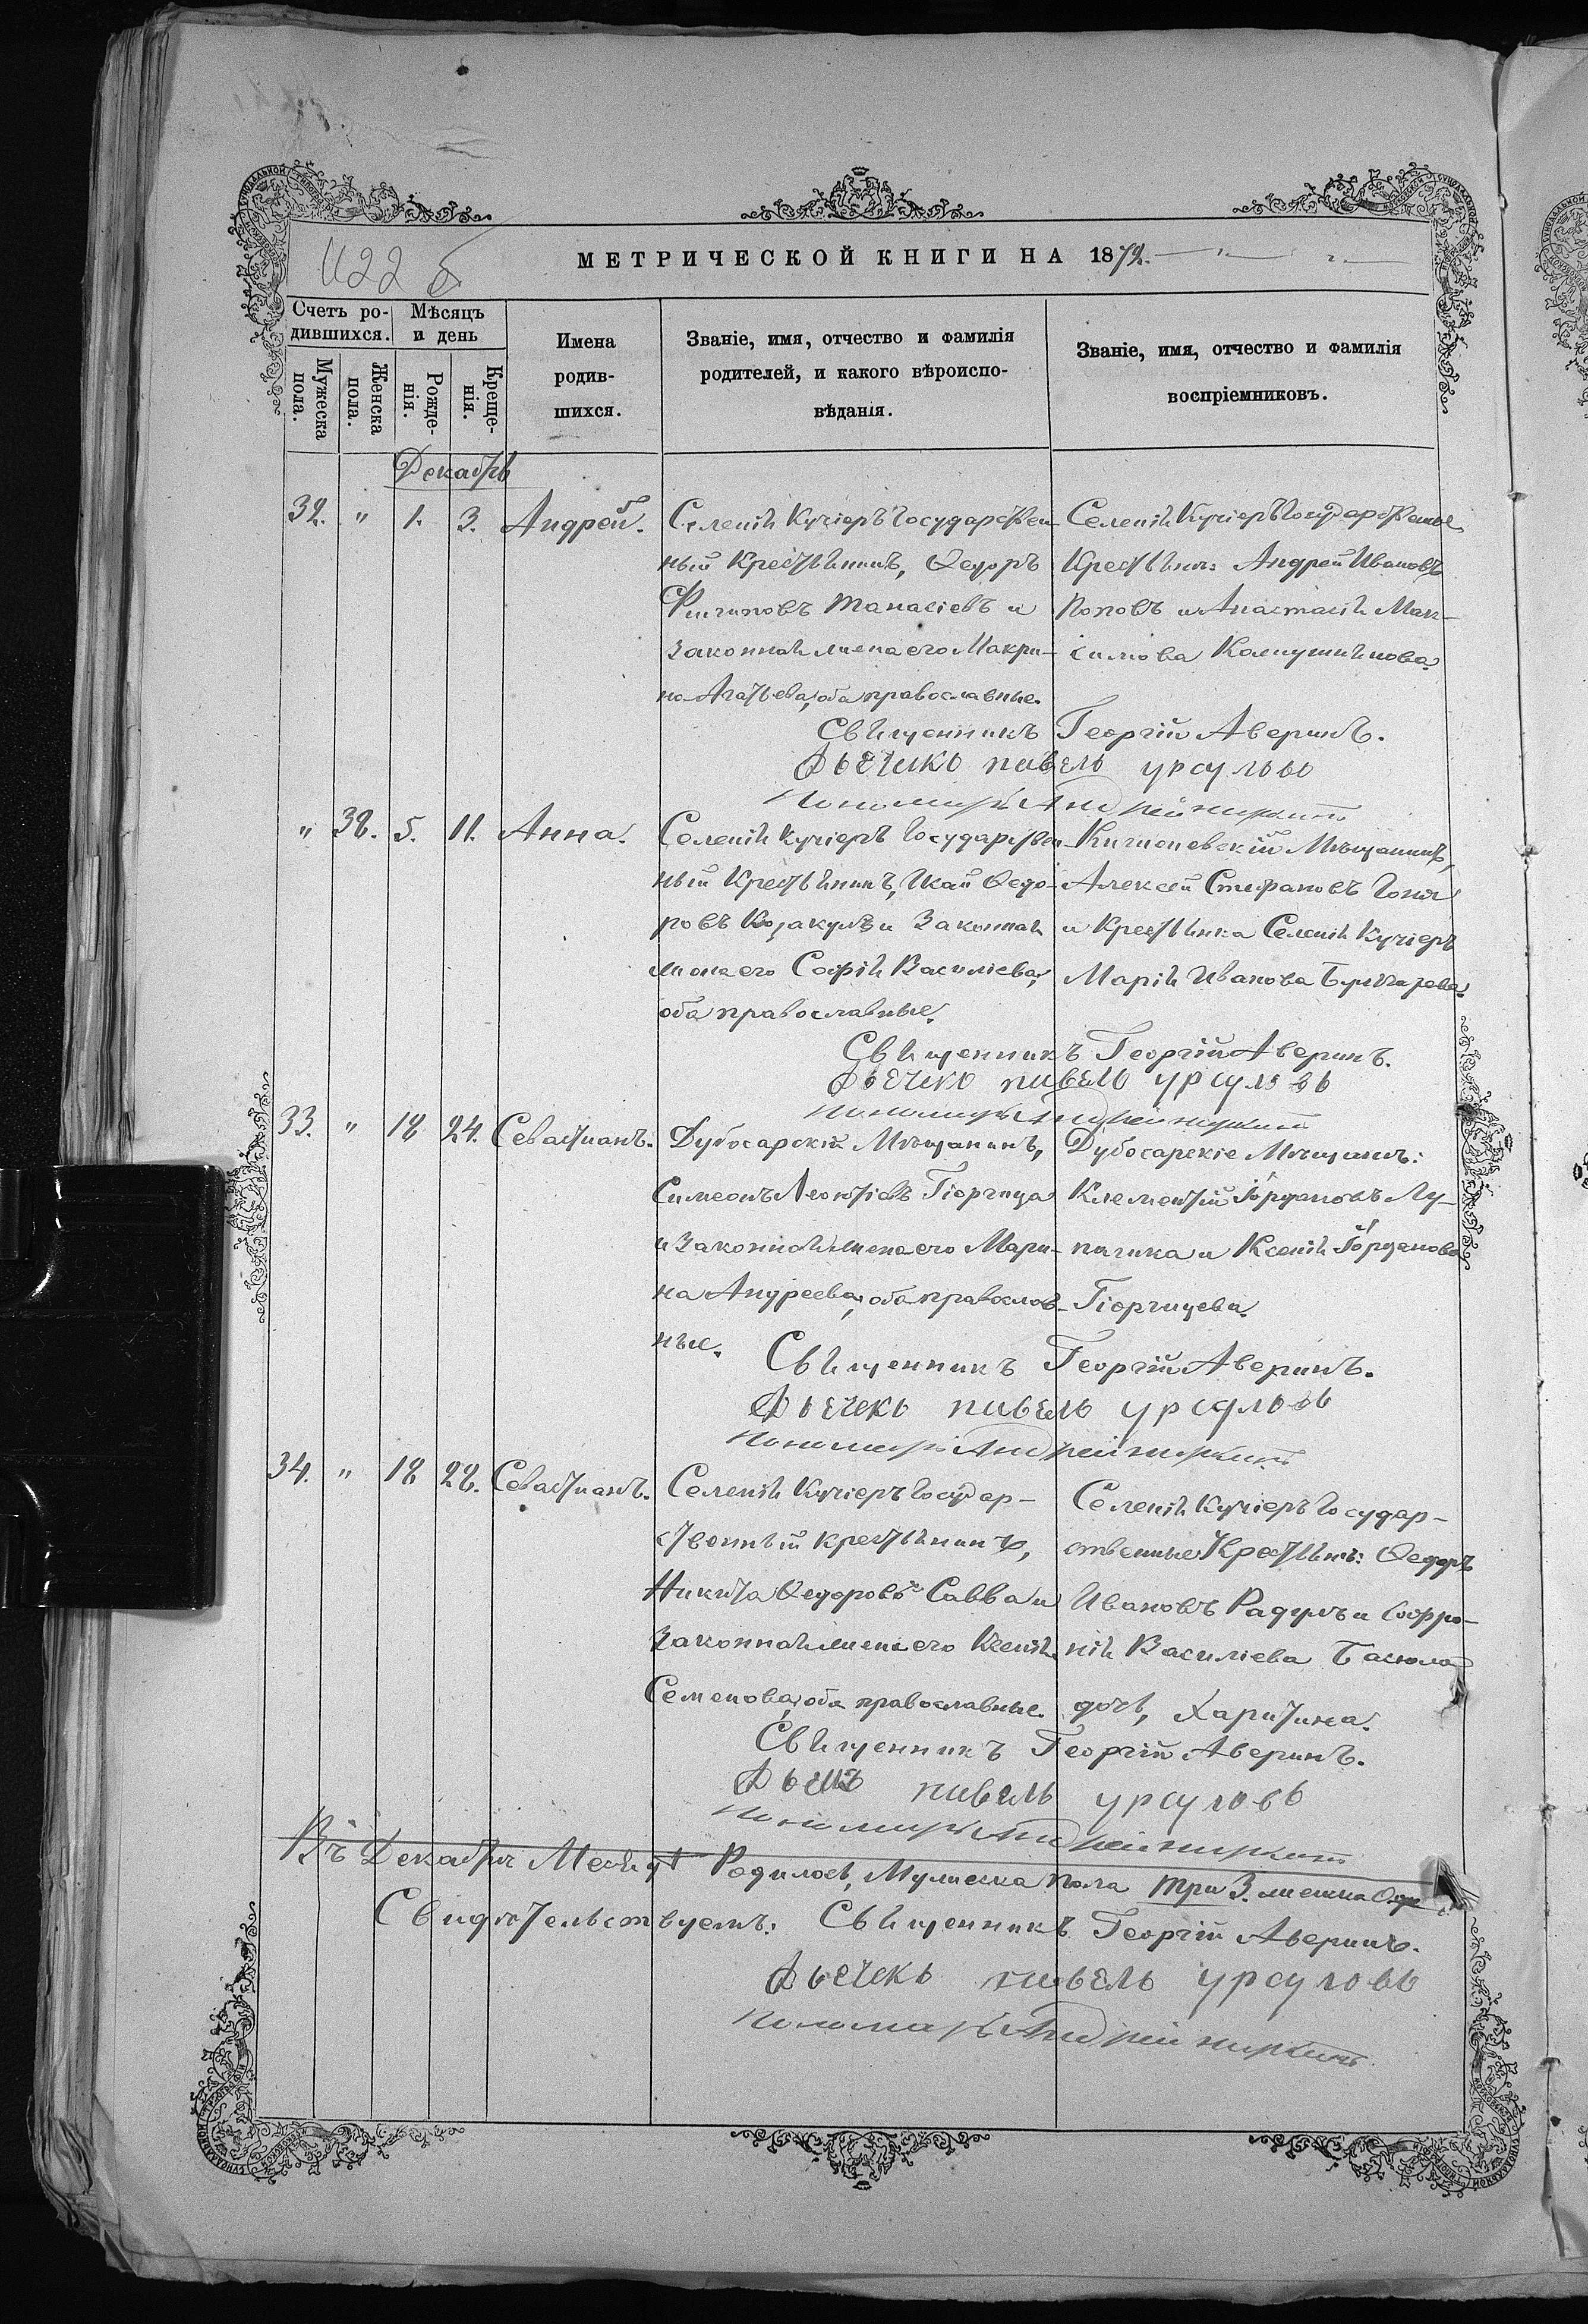 1122 б
МЕТРИЧЕСКОЙ КНИГИ НА 1872.
Счетъ родившихся.
Мѣсяцъ и день
Мужеска пола.
Женска пола.
Рожденія.
Крещенія.
Имена родившихся.
Званіе, имя, отчество и фамилія
родителей, и какого вѣроиспо-
вѣданія.
Званіе, имя, отчество и фамилія
воспріемниковъ.
Декабрь
32. " 1. 3. Андрей.
Селенія Кучіеръ Государствен-
ный Крестьянинъ, Ѳедоръ
Танасіевъ и
законная жена его Макри-
на Агаѳьева, оба православные.
Селенія Кучіеръ Государственные
Крестьяне: Андрей Ивановъ
Поповъ и Анастасія Мак-
симова
Священникъ Георгій Аверинъ.
Дьячекъ Павелъ Урсуловъ
Пономарь Андрей
" 32. 5. 11. Анна.
Селенія Кучіеръ Государствен-
ный Крестьянинъ, Ѳедо-
ровъ и Законная
жена его Софія Василіева,
оба православные.
Кишиневскій Мѣщанинъ,
Алексей Стефановъ
и Крестьянка Селенія Кучіеръ
Марія Иванова
Священникъ Георгій Аверинъ.
Дьячекъ Павелъ Урсуловъ
Пономарь Андрей
33. " 18 24. Севастіанъ.
Дубосарскій Мѣщанинъ,
Симеонъ Леонтіевъ Гіоргица
и Законная жена его Мари-
на Андреева, оба православ-
ные.
Дубосарскіе Мѣщане:
Клементій Іордановъ Лу-
пичика и Ксенія Іорданова
Гіоргицева.
Священникъ Георгій Аверинъ.
Дьячекъ Павелъ Урсуловъ
Пономарь Андрей
34. " 18 28. Севастіанъ.
Селенія Кучіеръ Государ-
ственный крестьянинъ,
Никита Ѳедоровъ Савва и
Законная жена его Ксенія
Семенова, оба православные.
Селенія Кучіеръ Государ-
ственные Крестьяне: Ѳедоръ
Ивановъ Радулъ и Софро-
нія Василіева
дочь, Харитина.
Священникъ Георгій Аверинъ.
Павелъ Урсуловъ
Пономарь Андрей
Въ Декабрѣ Месяцѣ Родилось, Мужеска пола три 3. женска
Свидѣтельствуемъ: Священникъ Георгій Аверинъ.
Дьячекъ Павелъ Урсуловъ
Пономарь Андрей